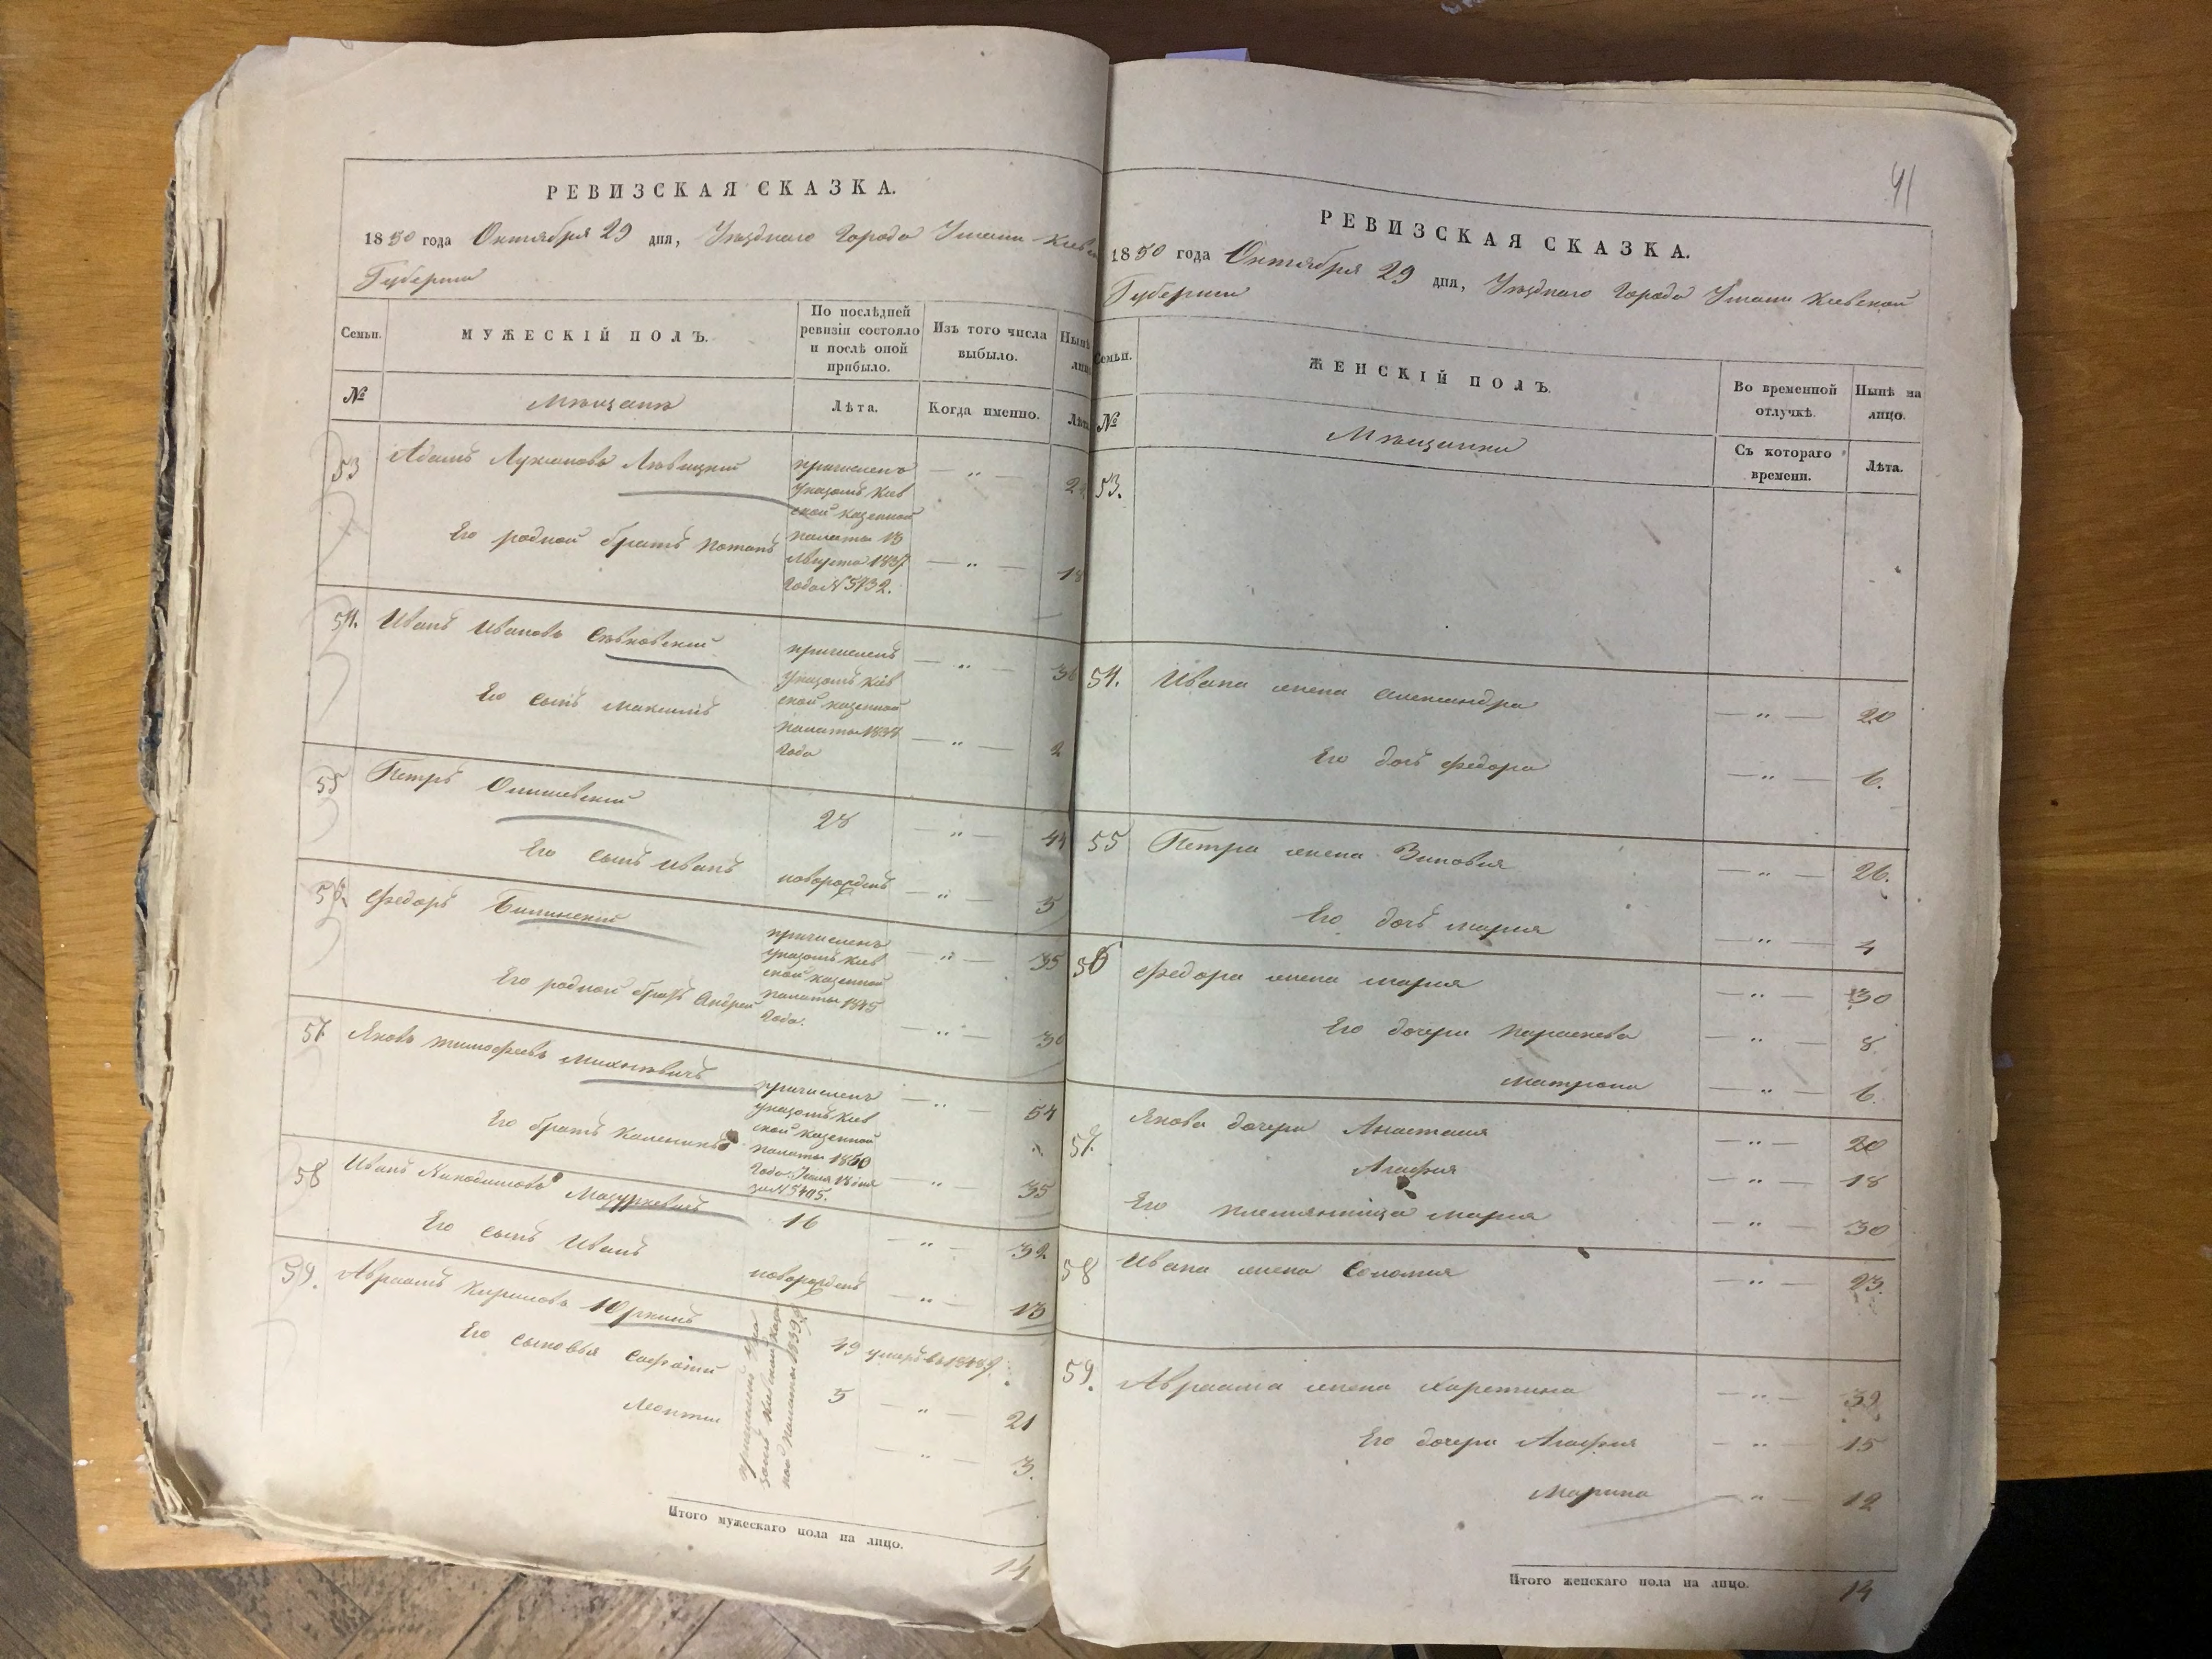 РЕВИЗСКАЯ СКАЗКА.
1850 года Октября 29 дня, Уѣзднаго Города Умани Кіевской
Губерніи
Семьи. МУЖЕСКІЙ ПОЛЪ. По послѣдней ревизіи состояло и послѣ оной прибыло. Изъ того числа выбыло. Нынѣ
№ Мѣщане Лѣта. Когда именно. Лѣта
53 Адамъ Лукьяновъ Левицкій причисленъ — „ —
указомъ Кіев
ской казенной
Его родной братъ Потапъ палаты 13 — „ — 18
Августа 1837
Года N 5732.
54. Иванъ Ивановъ причисленъ — „ — 36
указомъ Кіев
Его сынъ Максимъ ской казенной
палаты — „ — 2
Года
55 Петръ 28 — „ — 44
Его сынъ Иванъ новорожденъ — „ — 5
56. Федоръ Билинский причисленъ — „ — 35
указомъ Кіев
ской казенной
Его родной братъ Андрей палаты 1845 — „ — 30
Года.
57 Яковъ Тимофеевъ Михневичъ причисленъ — „ — 54
указомъ Кіев
ской казенной
Его братъ палаты 1850 — „ — 35
Года
за N 5405.
58 Иванъ Никодимовъ Мазуркевичъ 16 — „ — 32
Его сынъ Иванъ новорожденъ — „ — 13
59. Авраамъ Кириловъ Юркинъ 49 умеръ въ
Его сыновья 5 — „ — 21
Леонтій — „ — 3.
Итого мужескаго пола на лицо. 14
41
РЕВИЗСКАЯ СКАЗКА.
1850 года Октября 29 дня, Уѣзднаго Города Умани Кіевской
Губерніи
Семьи. ЖЕНСКІЙ ПОЛЪ. Во временной отлучкѣ. Нынѣ на лицо.
№ Мѣщанки Съ котораго времени. Лѣта.
53.
54. Ивана жена Александра — „ — 20
Его дочь Федора — „ — 6.
55 Петра жена Зиновія — „ — 26.
Его дочь Марія — „ — 4
56 Федора жена Марія — „ — 30
Его дочери Параскева — „ — 8
Матрона — „ — 6.
57. Якова дочери Анастасія — „ — 20
Агафія — „ — 18
Его племянница Марія — „ — 30
58 Ивана жена Соломія — „ — 23.
59. Авраама жена Харитина — „ — 39
Его дочери Агафія — „ — 15
Марина — „ — 12
Итого женскаго пола на лицо. 14